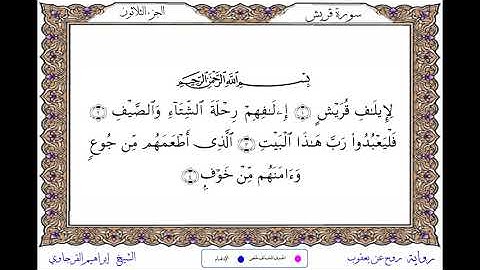 سورة قريش
الجزء الثلاثون
بِسْمِ اللَّهِ الرَّحْمَٰنِ الرَّحِيمِ
لِإِيلَٰفِ قُرَيْشٍ ١ إِۦلَٰفِهِمْ رِحْلَةَ ٱلشِّتَآءِ وَٱلصَّيْفِ ٢
فَلْيَعْبُدُوا۟ رَبَّ هَٰذَا ٱلْبَيْتِ ٣ ٱلَّذِىٓ أَطْعَمَهُم مِّن جُوعٍ
وَءَامَنَهُم مِّنْ خَوْفٍۭ ٤
الشيخ إبراهيم الفرجاوي
الإدغام
رواية روح عن يعقوب